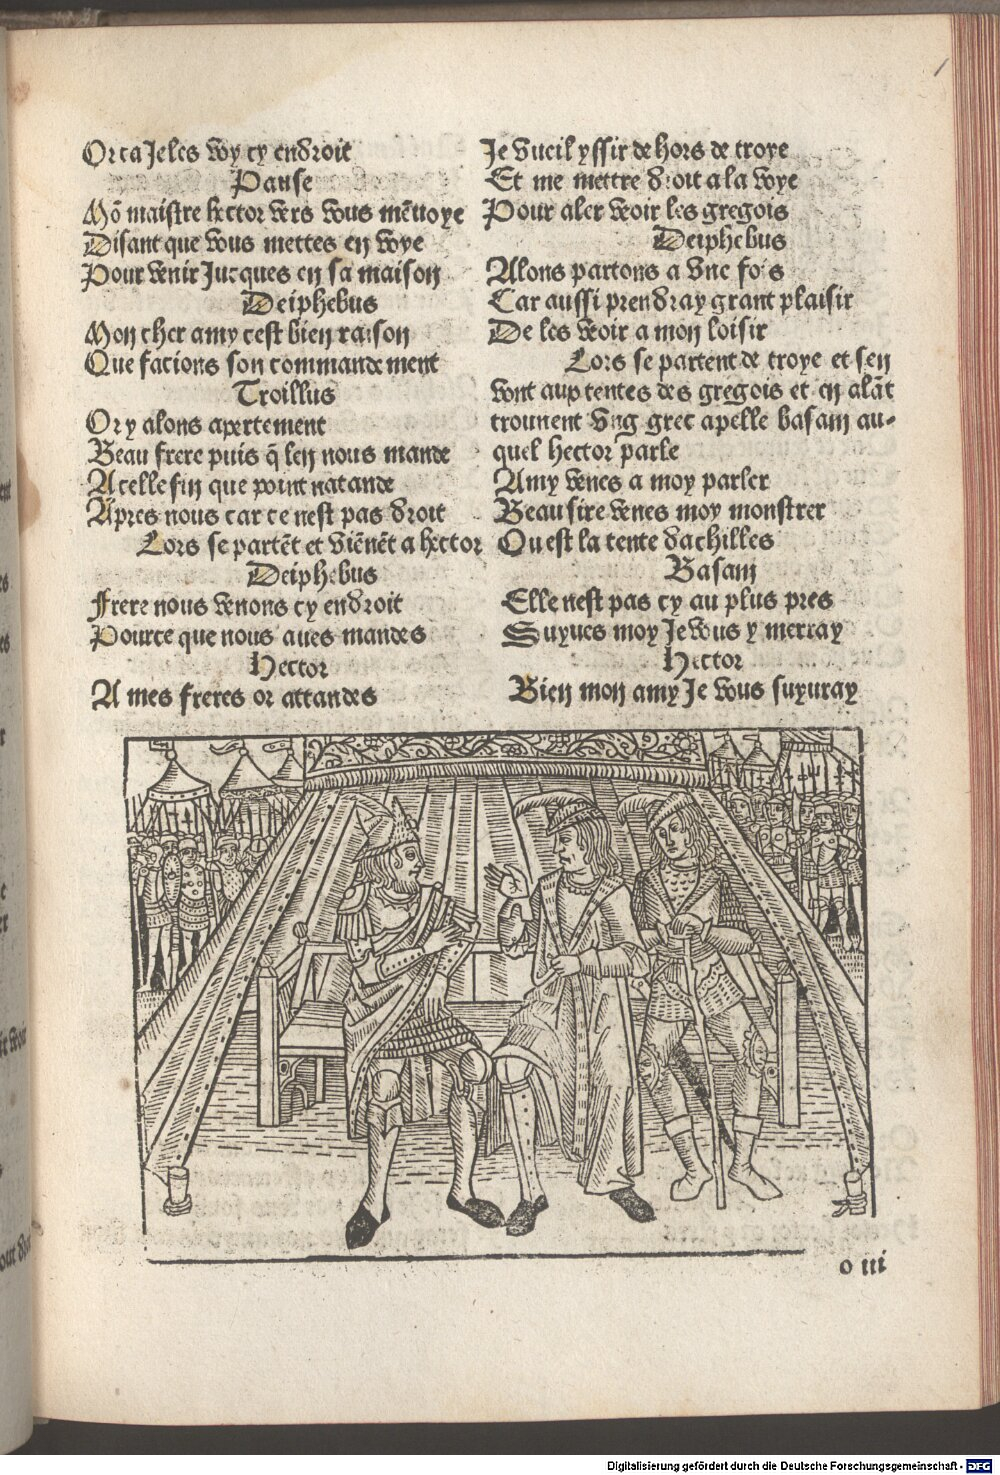 Or ca Je les voy cy endroit
Pause
Mõ maistre hector vers vous mẽuoye
Disant que vous mettes en voye
Pour venir Jucques en sa maison
Deiphebus
Mon cher amy cest bien raison
Que facions son commandement
Troillus
Or y alons apertement
Beau frere puis q̃ len nous mande
A celle fin que point natande
Apres nous car ce nest pas droit
Lors se partẽt et viẽnẽt a hector
Deiphebus
Frere nous venons cy endroit
Pource que nous aues mandes
Hector
A mes freres or attandes
Je vueil yssir de hors de troye
Et me mettre droit a la voye
Pour aler veoir les gregois
Deiphebus
Alons partons a vne fois
Car aussi prendray grant plaisir
De les veoir a mon loisir
Lors se partent de troye et sen
vont aux tentes des gregois et en alãt
trouuent vng grec apelle basam au-
quel hector parle
Amy venes a moy parler
Beau sire venes moy monstrer
Ou est la tente dachilles
Basam
Elle nest pas cy au plus pres
Suyues moy Je vous y merray
Hector
Bien mon amy Je vous suyuray
o iii
Digitalisierung gefördert durch die Deutsche Forschungsgemeinschaft - DFG